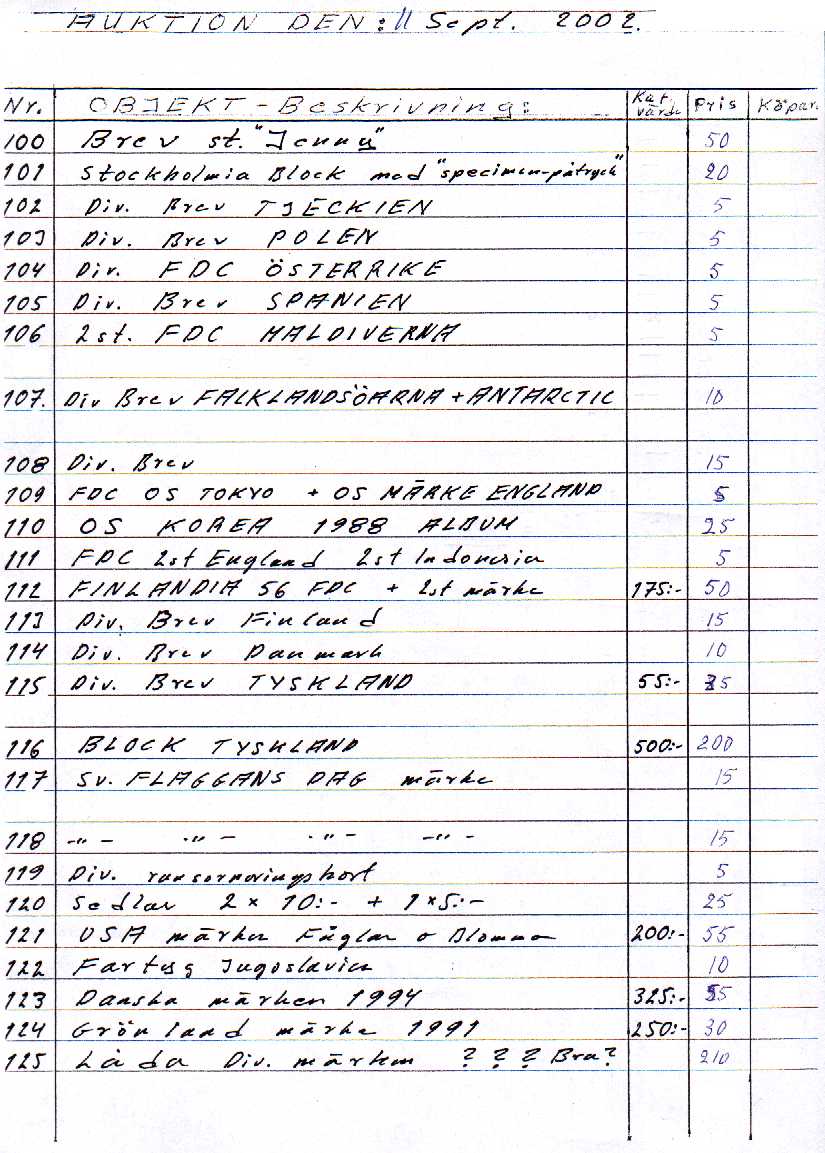 AUKTION DEN: 11 Sept. 2002.
Nr. OBJEKT - Beskrivning: Kat. värde Pris Köpar.
100 Brev st. "Jenny" 50
101 Stockholmia Block med "specimen-påtryck" 20
102 Div. Brev TJECKIEN 5
103 Div. Brev POLEN 5
104 Div. FDC ÖSTERRIKE 5
105 Div. Brev SPANIEN 5
106 2st. FDC MALDIVERNA 5
107. Div Brev FALKLANDSÖARNA + ANTARCTIC 10
108 Div. Brev 15
109 FDC OS TOKYO + OS MÄRKE ENGLAND 5
110 OS KOREA 1988 ALBUM 25
111 FDC 2st England 2st Indonesia 5
112 FINLANDIA 56 FDC + 2st märke 175:- 50
113 Div. Brev Finland 15
114 Div. Brev Danmark 10
115 Div. Brev TYSKLAND 55:- 35
116 BLOCK TYSKLAND 500:- 200
117 Sv. FLAGGANS DAG märke 15
118 -"- -"- -"- -"- 15
119 Div. ransoneringskort 5
120 Sedlar 2 x 10:- + 1x5:- 25
121 USA märken Fåglar o Blommor 200:- 55
122 Fartyg Jugoslavien 10
123 Danska märken 1994 325:- 55
124 Grönland märke 1991 250:- 30
125 Låda Div. märken ? ? ? Bra? 210